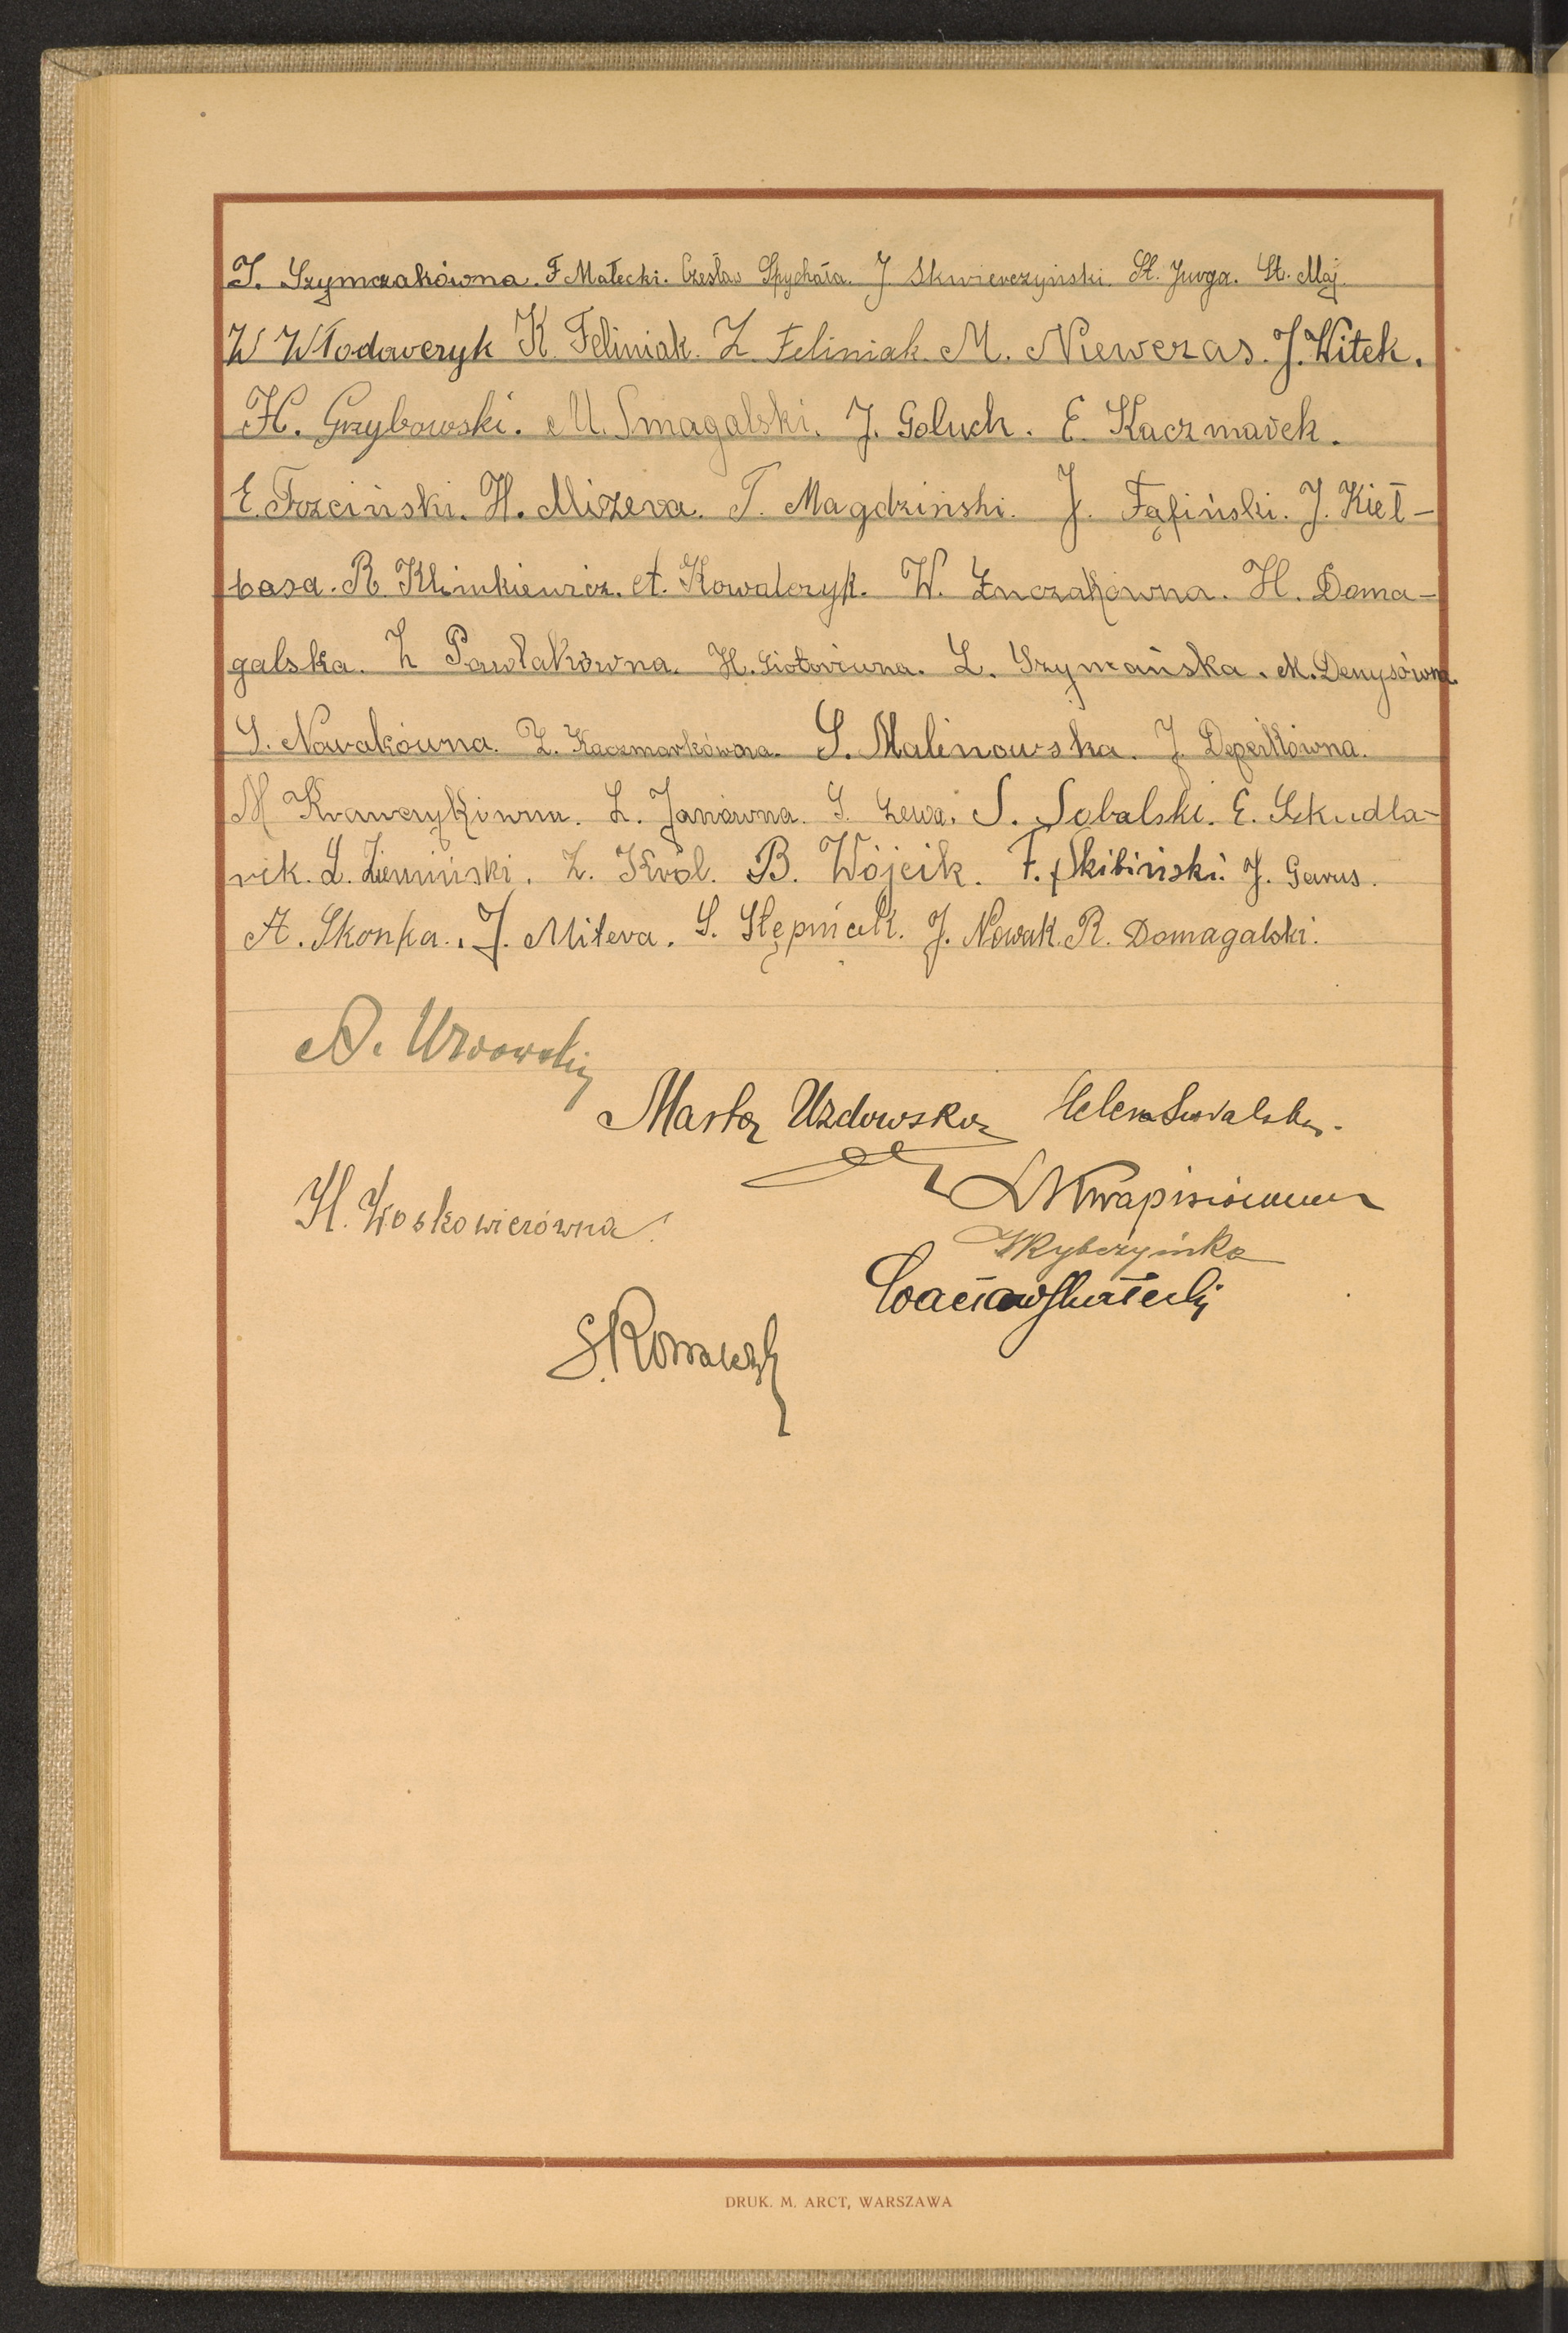 J. Szymczakówna. F Małecki. Czesław Spychała. J. Skwierczyński. St. Jurga. St. Maj.
W Włodarczyk K. Feliniak. Z. Feliniak. M. Niewczas. J. Witek.
H. Grzybowski. M. Smagalski. J. Goluch. E. Kaczmarek.
E. Trzciński. H. Mizera. T. Magdziński. J. Fąfiński. J. Kieł-
basa. R. Klimkiewicz. A. Kowalczyk. W. Znczakówna. H. Doma-
galska. Z Pawlakówna. H. L. Szymańska. M. Denysówna.
S. Nowakówna. Z. Kaczmarkówna. S. Malinowska. J.
M Krawczykówna. L. Janówna. S. Lewa. S. Sobalski. E. Szkudla-
rek. L. Ziemiński. Z. Król. B. Wójcik. F. Skibiński. J. Gawus.
A. Skonka. J. Mitera. S. Stępniak. J. Nowak. R. Domagalski.
Marta Uzdowska Helena
H. Woskowiczówna
S. Kowalczyk
DRUK. M. ARCT, WARSZAWA